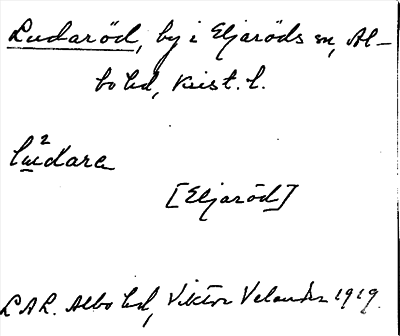 Ludaröd, by i Eljaröds sn, Al-
bo hd, Krist. l.
lu²dara
[Eljaröd]
LAL. Albo hd, Viktor Velander 1919.